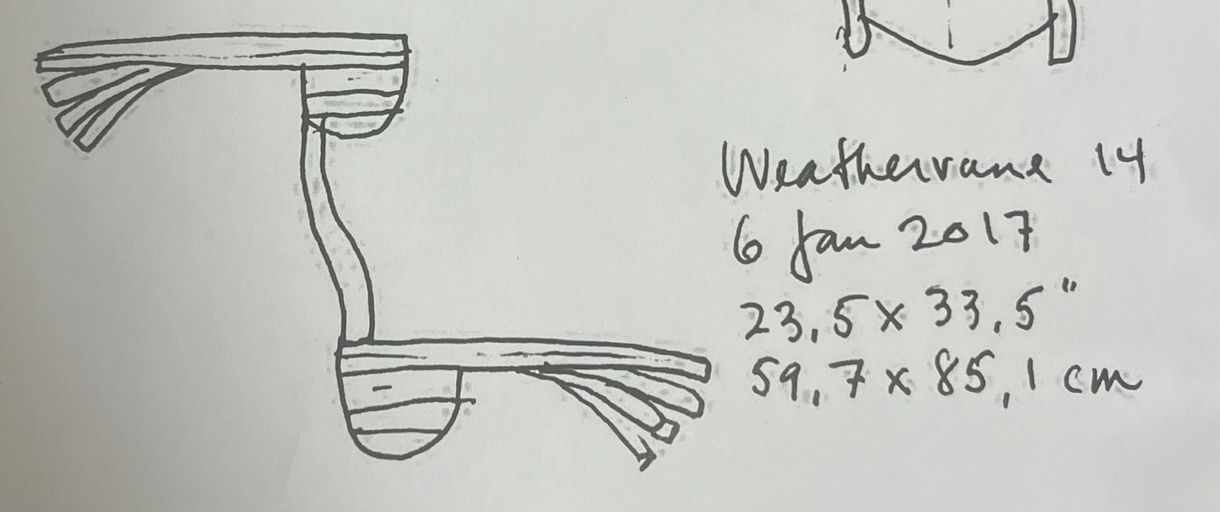 Weathervane 14
6 Jan 2017
23.5 x 33.5"
59.7 x 85.1 cm